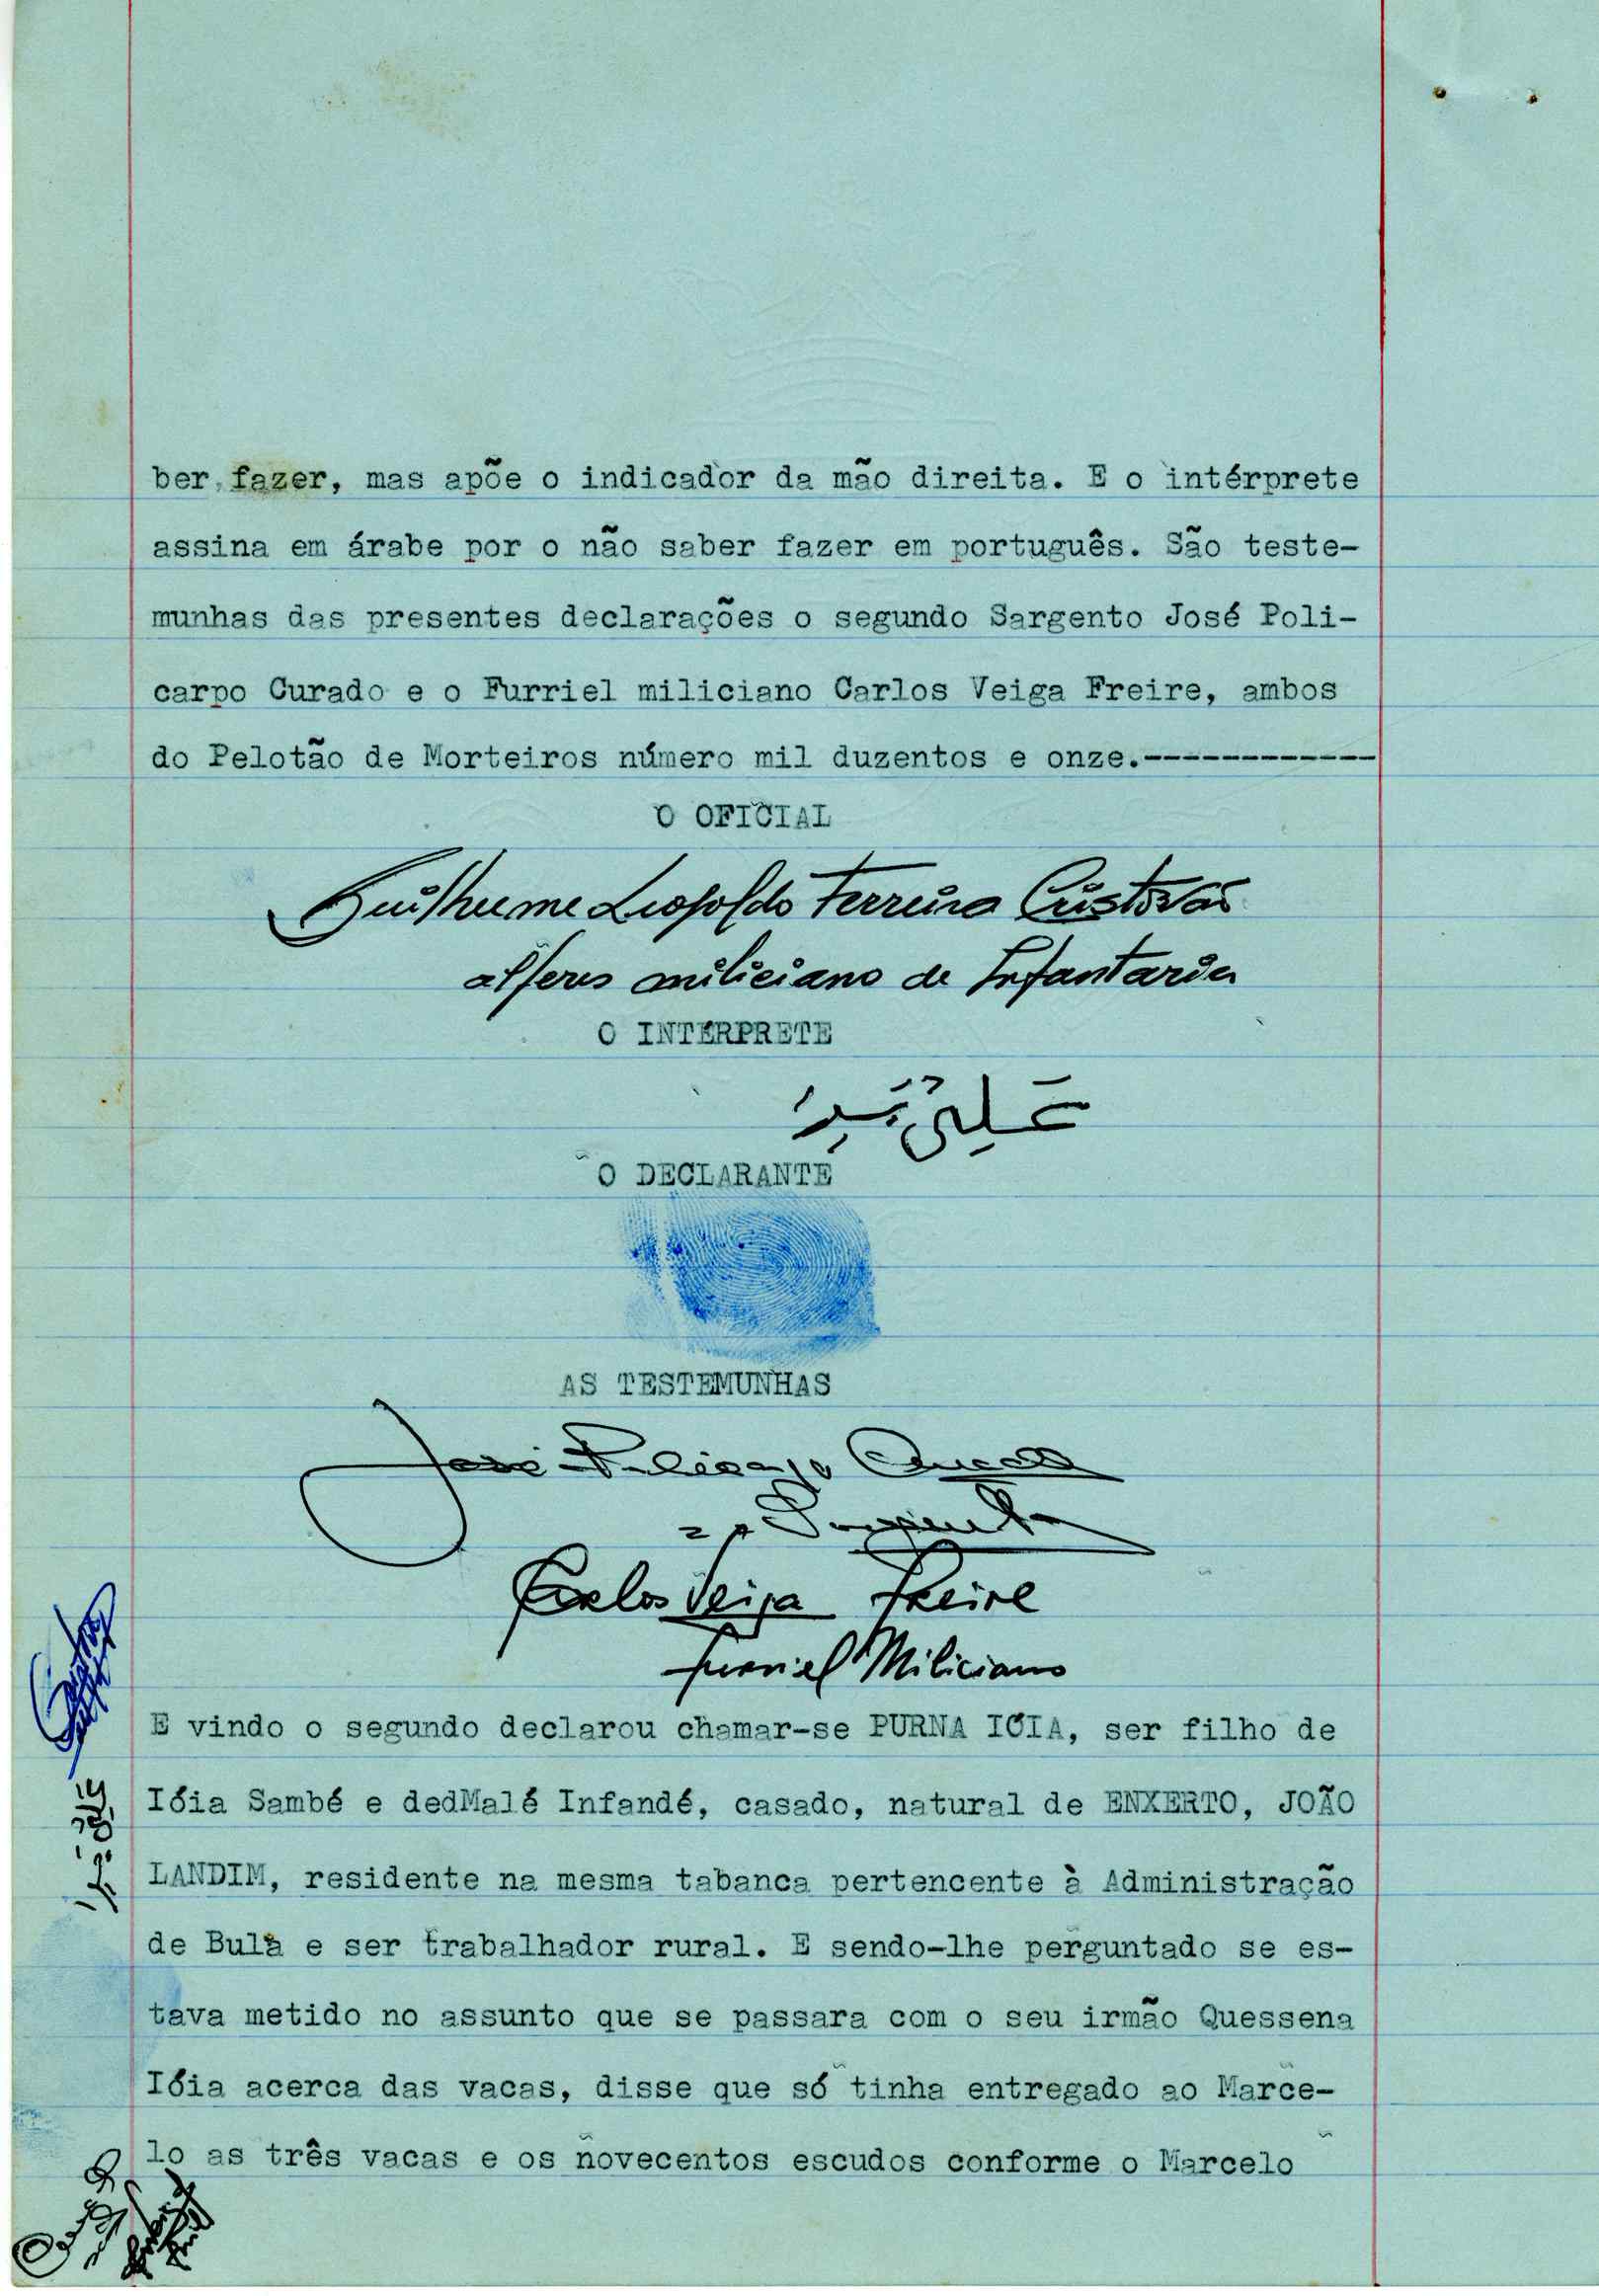 ber fazer, mas apõe o indicador da mão direita. E o intérprete
assina em árabe por o não saber fazer em português. São teste-
munhas das presentes declarações o segundo Sargento José Poli-
carpo Curado e o Furriel miliciano Carlos Veiga Freire, ambos
do Pelotão de Morteiros número mil duzentos e onze.------------
O OFICIAL
Guilherme Leopoldo Ferreira Cristovão
alferes miliciano de Infantaria
O INTÉRPRETE
O DECLARANTE
AS TESTEMUNHAS
José Policarpo Curado
2º Sargento
Carlos Veiga Freire
Furriel Miliciano
E vindo o segundo declarou chamar-se PURNA IÓIA, ser filho de
Ióia Sambé e dedMalé Infandé, casado, natural de ENXERTO, JOÃO
LANDIM, residente na mesma tabanca pertencente à Administração
de Bula e ser trabalhador rural. E sendo-lhe perguntado se es-
tava metido no assunto que se passara com o seu irmão Quessena
Ióia acerca das vacas, disse que só tinha entregado ao Marce-
lo as três vacas e os novecentos escudos conforme o Marcelo